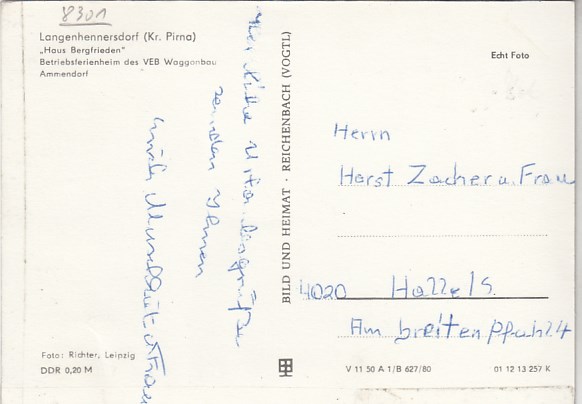 8301
Langenhennersdorf (Kr. Pirna)
„Haus Bergfrieden"
Betriebsferienheim des VEB Waggonbau
Ammendorf
senden Ihnen
BILD UND HEIMAT · REICHENBACH (VOGTL)
Echt Foto
Herrn
Horst Zacher u. Frau
4020 Halle/S.
Am breiten Pfuhl 24
Foto: Richter, Leipzig
DDR 0,20 M
V 11 50 A 1/B 627/80
01 12 13 257 K